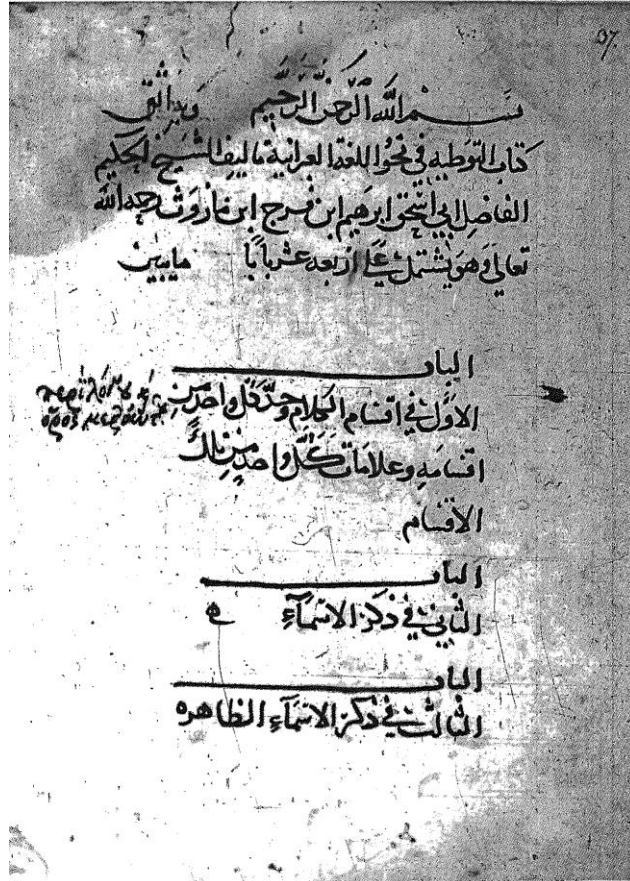 بسم الله الرحمن الرحيم وبه اثق
كتاب التوطيه في نحو اللغة العبرانية تاليف الشيخ الحكيم
الفاضل ابي اسحق ابرهيم ابن فرج ابن ماروث رحمه الله
تعالى وهو يشتمل على اربعه عشر بابا
الباب
الاول في اقسام الكلام وحد كل واحد من
اقسامه وعلامات كل واحد من تلك
الاقسام
الباب
الثاني في ذكر الاسمآءِ ه
الباب
الثالث في ذكر الاسمآءِ الظاهره